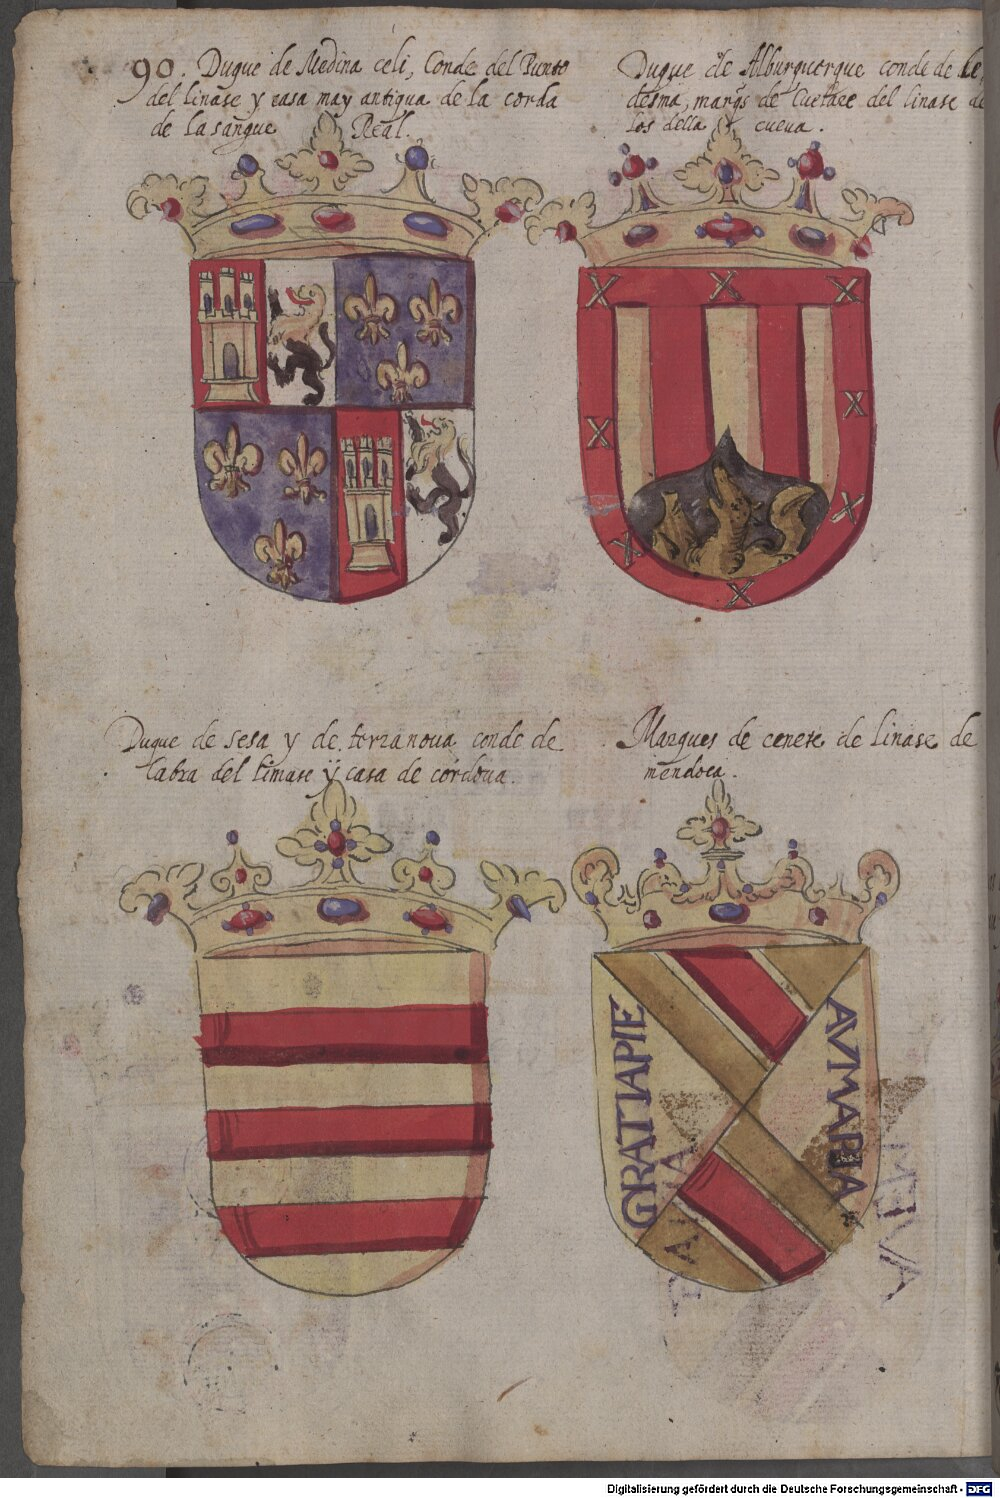 90. Duque de Medina celi, Conde del Punto
del linase y casa may antigua de la corda
de la sangue Real.
Duque de Alburquerque conde de le
desma, marqs de Cuelare del linase de
los della cueva.
Duque de sesa y de terranova conde de
Cabra del limase ÿ casa de cordova.
Marques de cenete de linase de
mendoca.
GRATIAPIE
AVMARIA
Digitalisierung gefördert durch die Deutsche Forschungsgemeinschaft - DFG